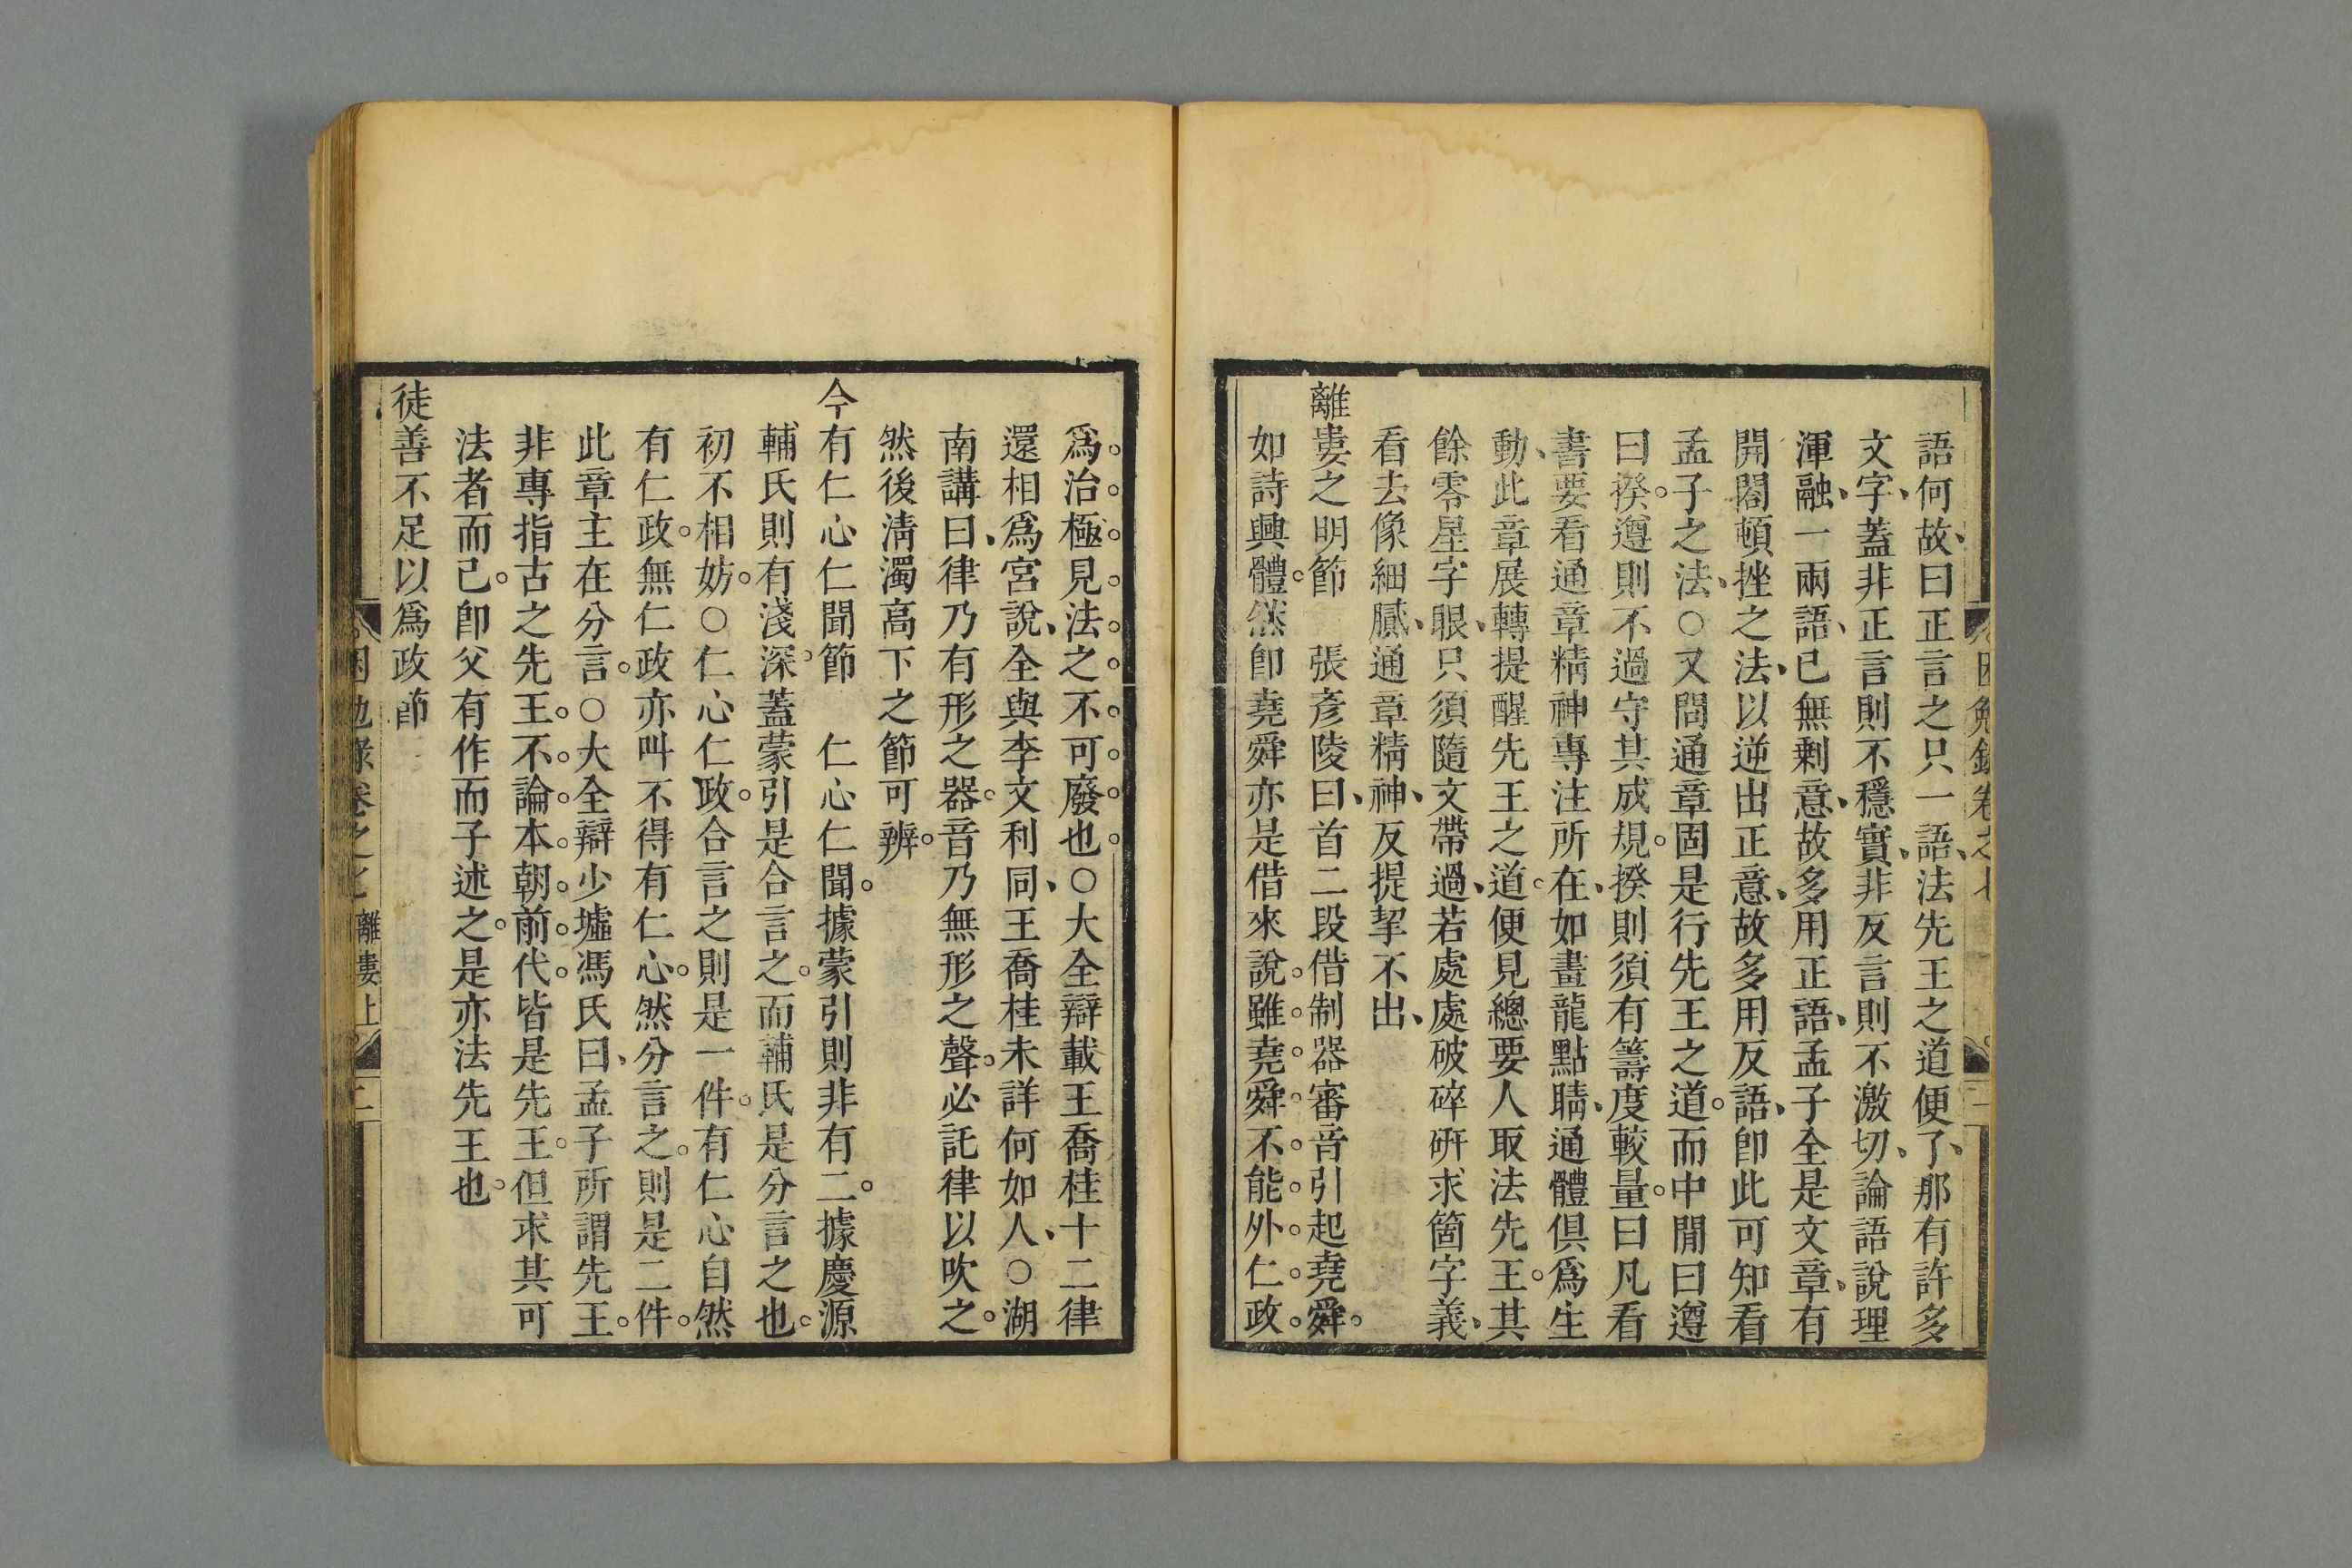 語何故曰正言之只一語法先王之道便了那有許多
文字蓋非正言則不穩實非反言則不激切論語說理
渾融一兩語已無剩意故多用正語孟子全是文章有
開闔頓挫之法以逆出正意故多用反語卽此可知看
孟子之法○又問通章固是行先王之道而中間曰遵
曰揆遵則不過守其成規揆則須有籌度較量曰凡看
書要看通章精神專注所在如畫龍點睛通體俱爲生
動此章展轉提醒先王之道便見總要人取法先王其
餘零星字眼只須隨文帶過若處處破碎硏求箇字義
看去像細膩通章精神反提挈不出
離婁之明節　張彥陵曰首二段借制器審音引起堯舜
如詩興體然卽堯舜亦是借來說雖堯舜不能外仁政
爲治極見法之不可廢也○大全辯載王喬桂十二律
還相爲宮說全與李文利同王喬桂未詳何如人○湖
南講曰律乃有形之器音乃無形之聲必託律以吹之
然後淸濁高下之節可辨
今有仁心仁聞節　仁心仁聞據蒙引則非有二據慶源
輔氏則有淺深蓋蒙引是合言之而輔氏是分言之也
初不相妨○仁心仁政合言之則是一件有仁心自然
有仁政無仁政亦叫不得有仁心然分言之則是二件
此章主在分言○大全辯少墟馮氏曰孟子所謂先王
非專指古之先王不論本朝前代皆是先王但求其可
法者而已卽父有作而子述之是亦法先王也
徒善不足以爲政節
離婁上　二